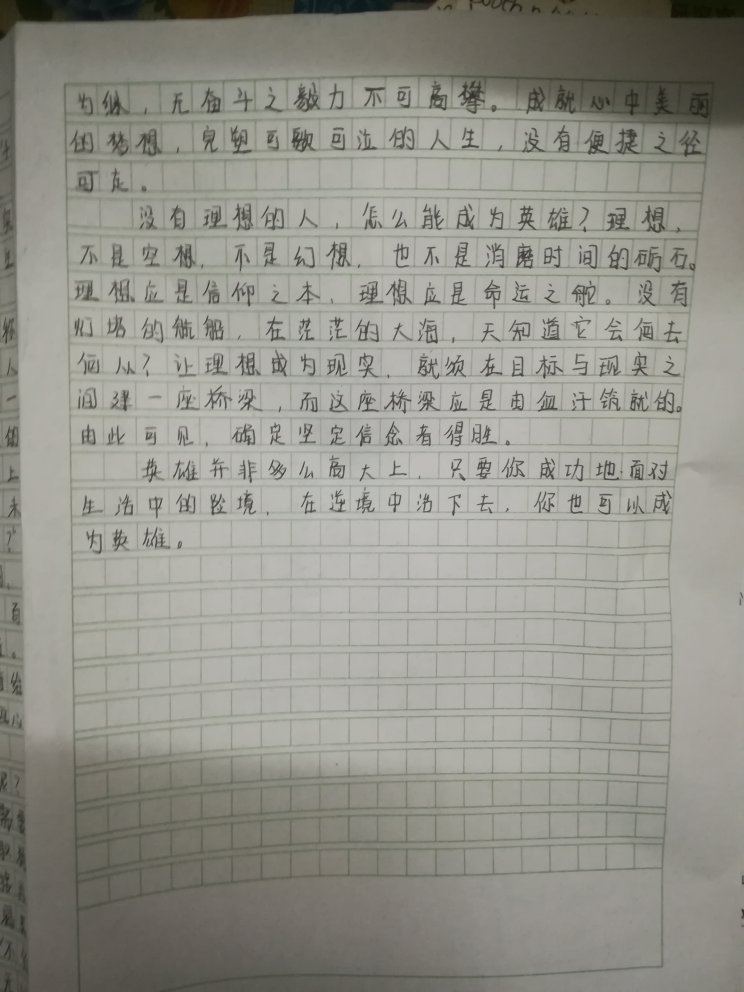 为继，无奋斗之毅力不可高攀。成就心中美丽
的梦想，完塑可歌可泣的人生，没有便捷之径
可走。
没有理想的人，怎么能成为英雄？理想，
不是空想，不是幻想，也不是消磨时间的砺石。
理想应是信仰之本，理想应是命运之舵。没有
灯塔的航船，在茫茫的大海，天知道它会何去
何从？让理想成为现实，就须在目标与现实之
间建一座桥梁，而这座桥梁应是由血汗筑就的。
由此可见，确定坚定信念者得胜。
英雄并非多么高大上，只要你成功地面对
生活中的险境，在逆境中活下去，你也可以成
为英雄。